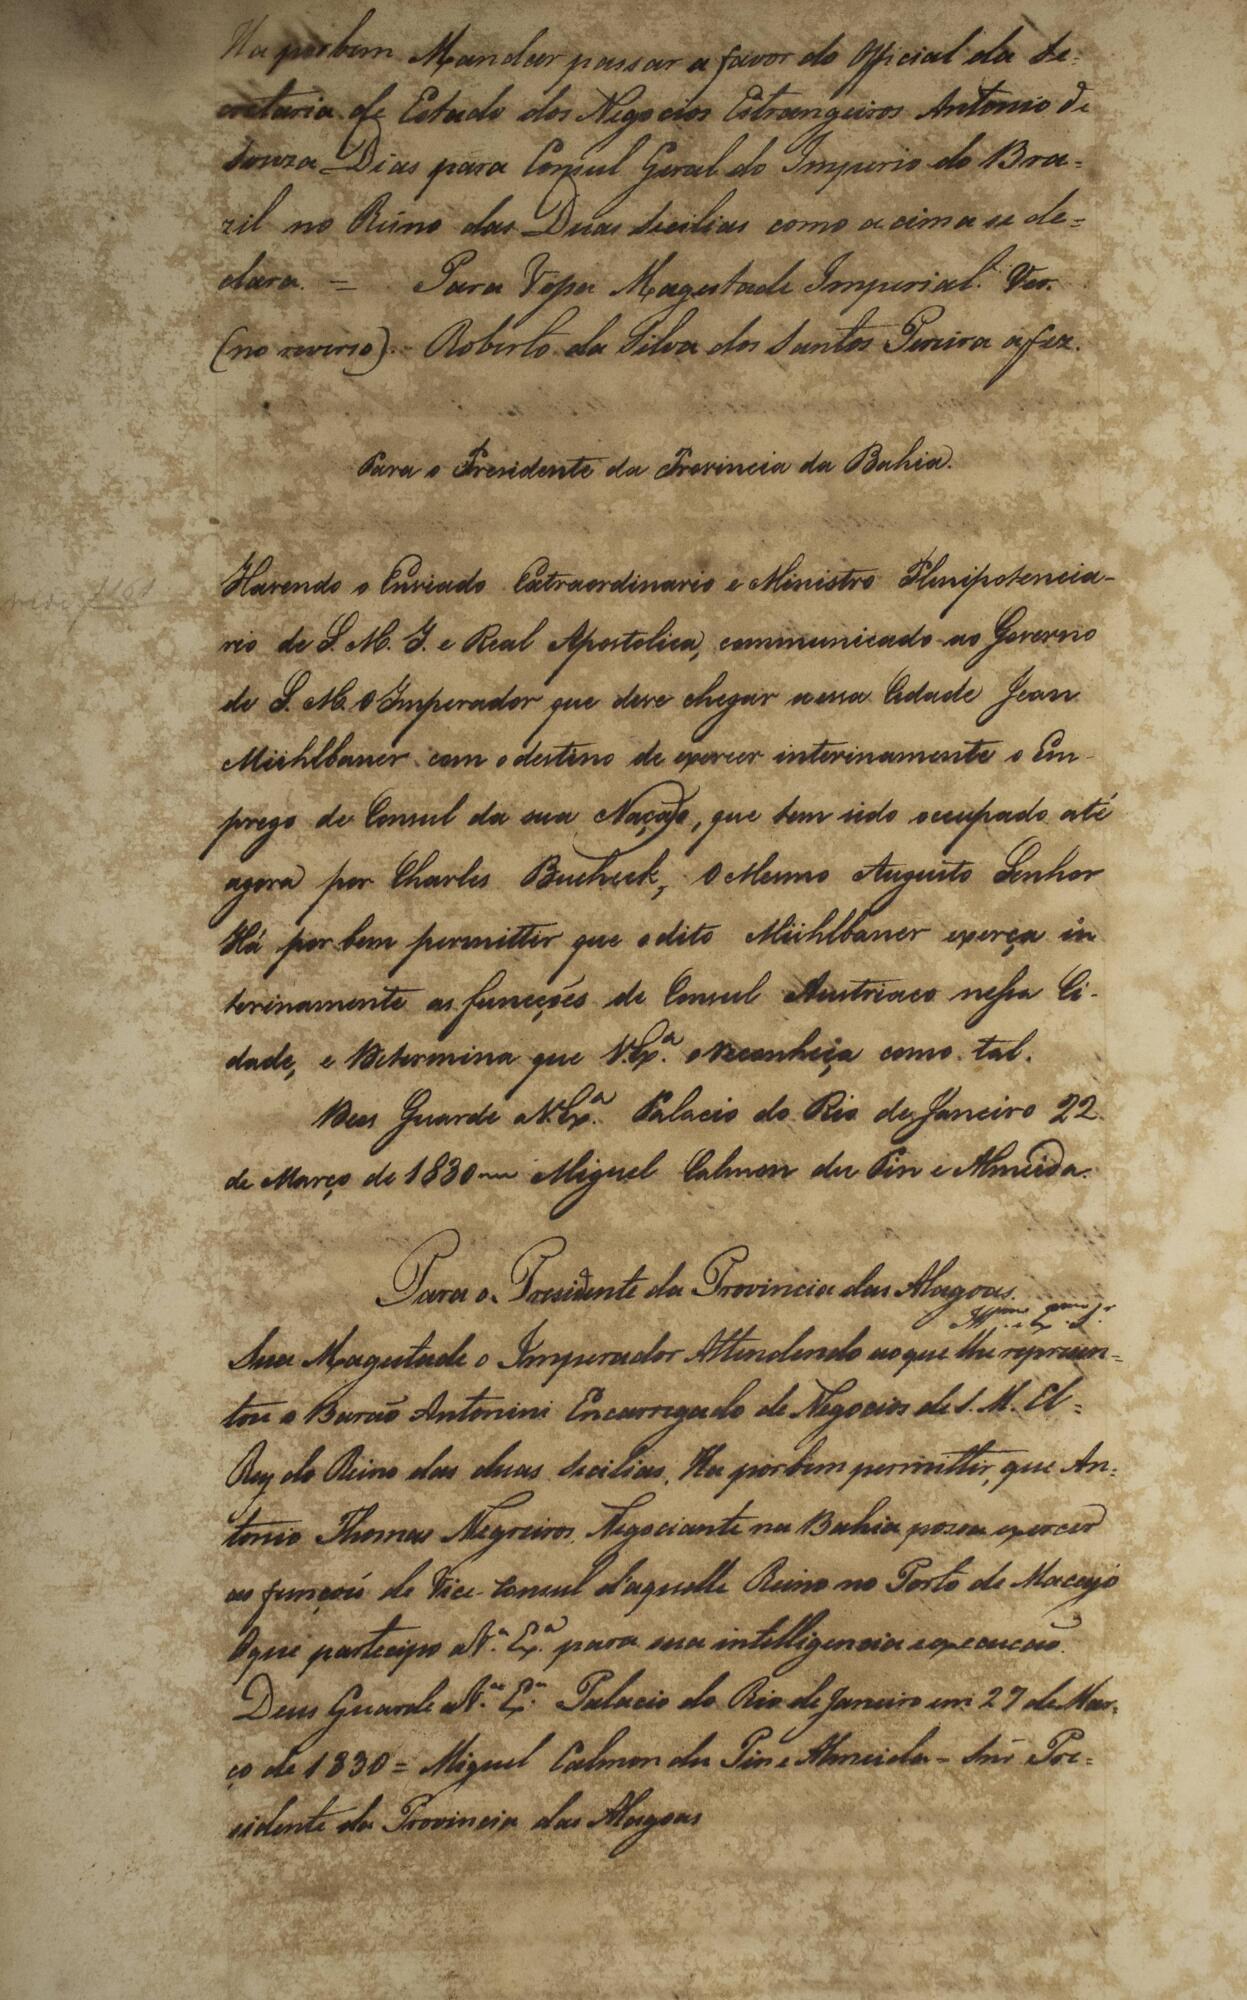 Ha por bem Mandar passar a favor do Official da Se-
cretaria de Estado dos Negocios Estrangeiros Antonio de
Souza Dias para Consul Geral do Imperio do Bra-
zil no Reino das Duas Sicilias como acima se de-
clara. = Para Vossa Magestade Imperial Ver.
(no reverso). Roberto da Silva dos Santos Pereira a fez.
Para o Presidente da Provincia da Bahia.
Havendo o Enviado Extraordinario e Ministro Plenipotencia-
rio de S. M. I. e Real Apostolica, communicado ao Governo
de S. M. O Imperador que deve chegar a essa Cidade Jean
Mühlbauer com o destino de exercer interinamente o Em-
prego de Consul da sua Nação, que tem sido occupado até
agora por Charles Bucheck, O Mesmo Augusto Senhor
Há por bem permittir que o dito Mühlbauer exerça in
terinamente as funcções de Consul Austriaco nessa Ci-
dade, e Determina que V. Exª. o reconheça como tal.
Deos Guarde a V. Exª. Palacio do Rio de Janeiro 22
de Março de 1830 Miguel Calmon du Pin e Almeida.
Para o Presidente da Provincia das Alagoas.
Illmo. e Exmo. Sr.
Sua Magestade o Imperador Attendendo ao que lhe represen-
tou o Barão Antonini Encarregado de Negocios de S. M. El-
Rey do Reino das duas Sicilias, Ha por bem permittir, que An-
tonio Thomas Negreiros, Negociante na Bahia possa exercer
as funções de Vice-Consul d'aquelle Reino no Porto de Maceyó
O que participo a Vª. Exª. para sua intelligencia e execução.
Deus Guarde a Vª. Exª. Palacio do Rio de Janeiro em 27 de Mar-
ço de 1830 = Miguel Calmon du Pin e Almeida - Snr. Pre-
sidente da Provincia das Alagoas